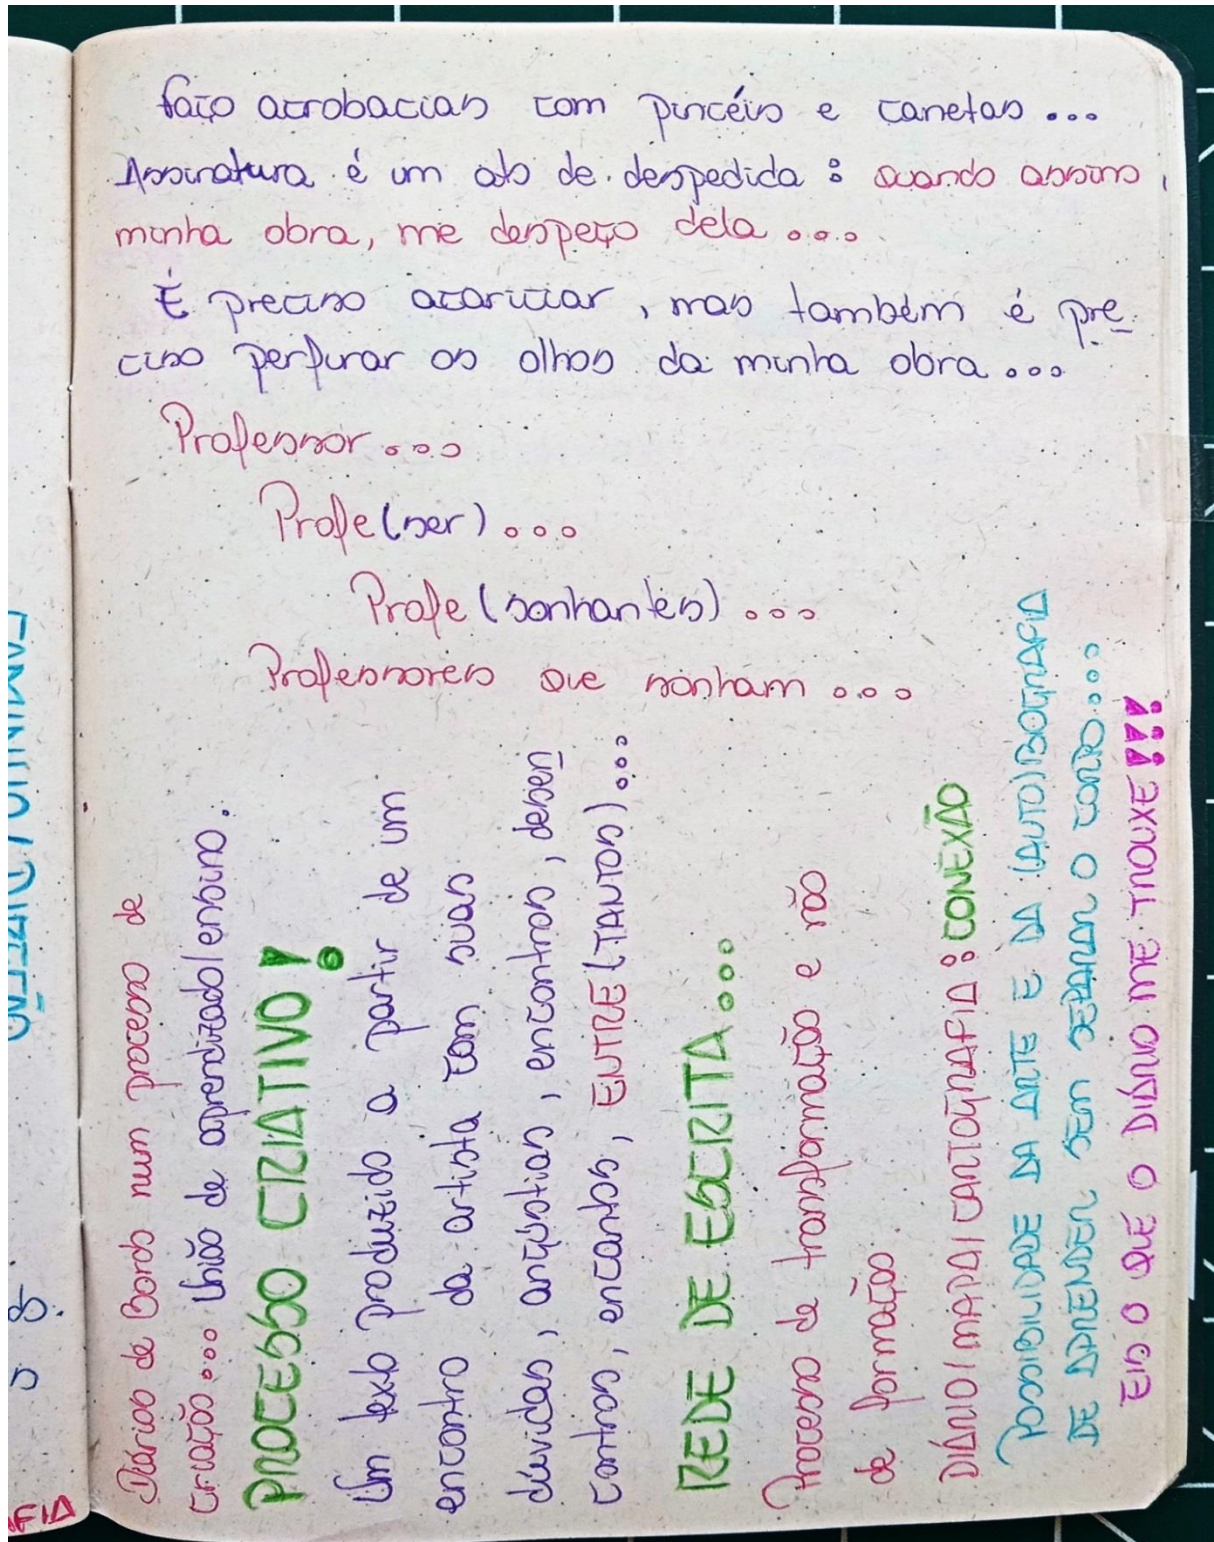 faço acrobacias com pincéis e canetas...
Assinatura é um ato de despedida: quando assino,
minha obra, me despeço dela...
É preciso acariciar, mas também é pre
ciso perfurar os olhos da minha obra...
Professor...
Profe(ser)...
Profe(sonhantes)...
Professores que sonham...
Diários de Bordo num processo de
criação... União de aprendizado/ensino.
PROCESSO CRIATIVO!
Um texto produzido a partir de um
encontro da artista com suas
dúvidas, angústias, encontros, desen
contros, encantos, ENTRE(TANTOS)...
REDE DE ESCRITA...
Processo de transformação e não
de formação
DIÁRIO/MAPA/
CONEXÃO
POSSIBILIDADE DA ARTE E DA
DE APRENDER SEM SEPARAR O CORPO...
EIS O QUE O DIÁRIO ME TROUXE!!!
FIA